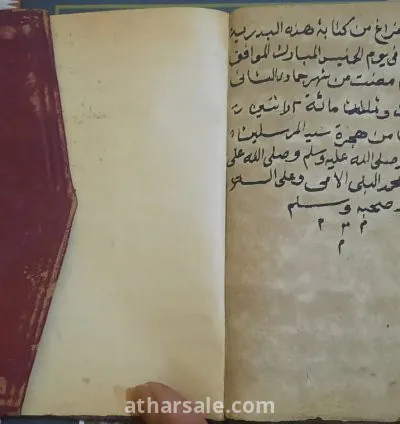 فراغ من كتابة هذه البدرية
فى يوم الخميس المبارك الموافق
مضت من شهر جماد الثانى
وثلثمائة الاثنين
من هجرة سيد المرسلين
صلى الله عليه وسلم وصلى الله على
محمد النبى الامى وعلى اله
وصحبه وسلم
م م م
م
atharsale.com